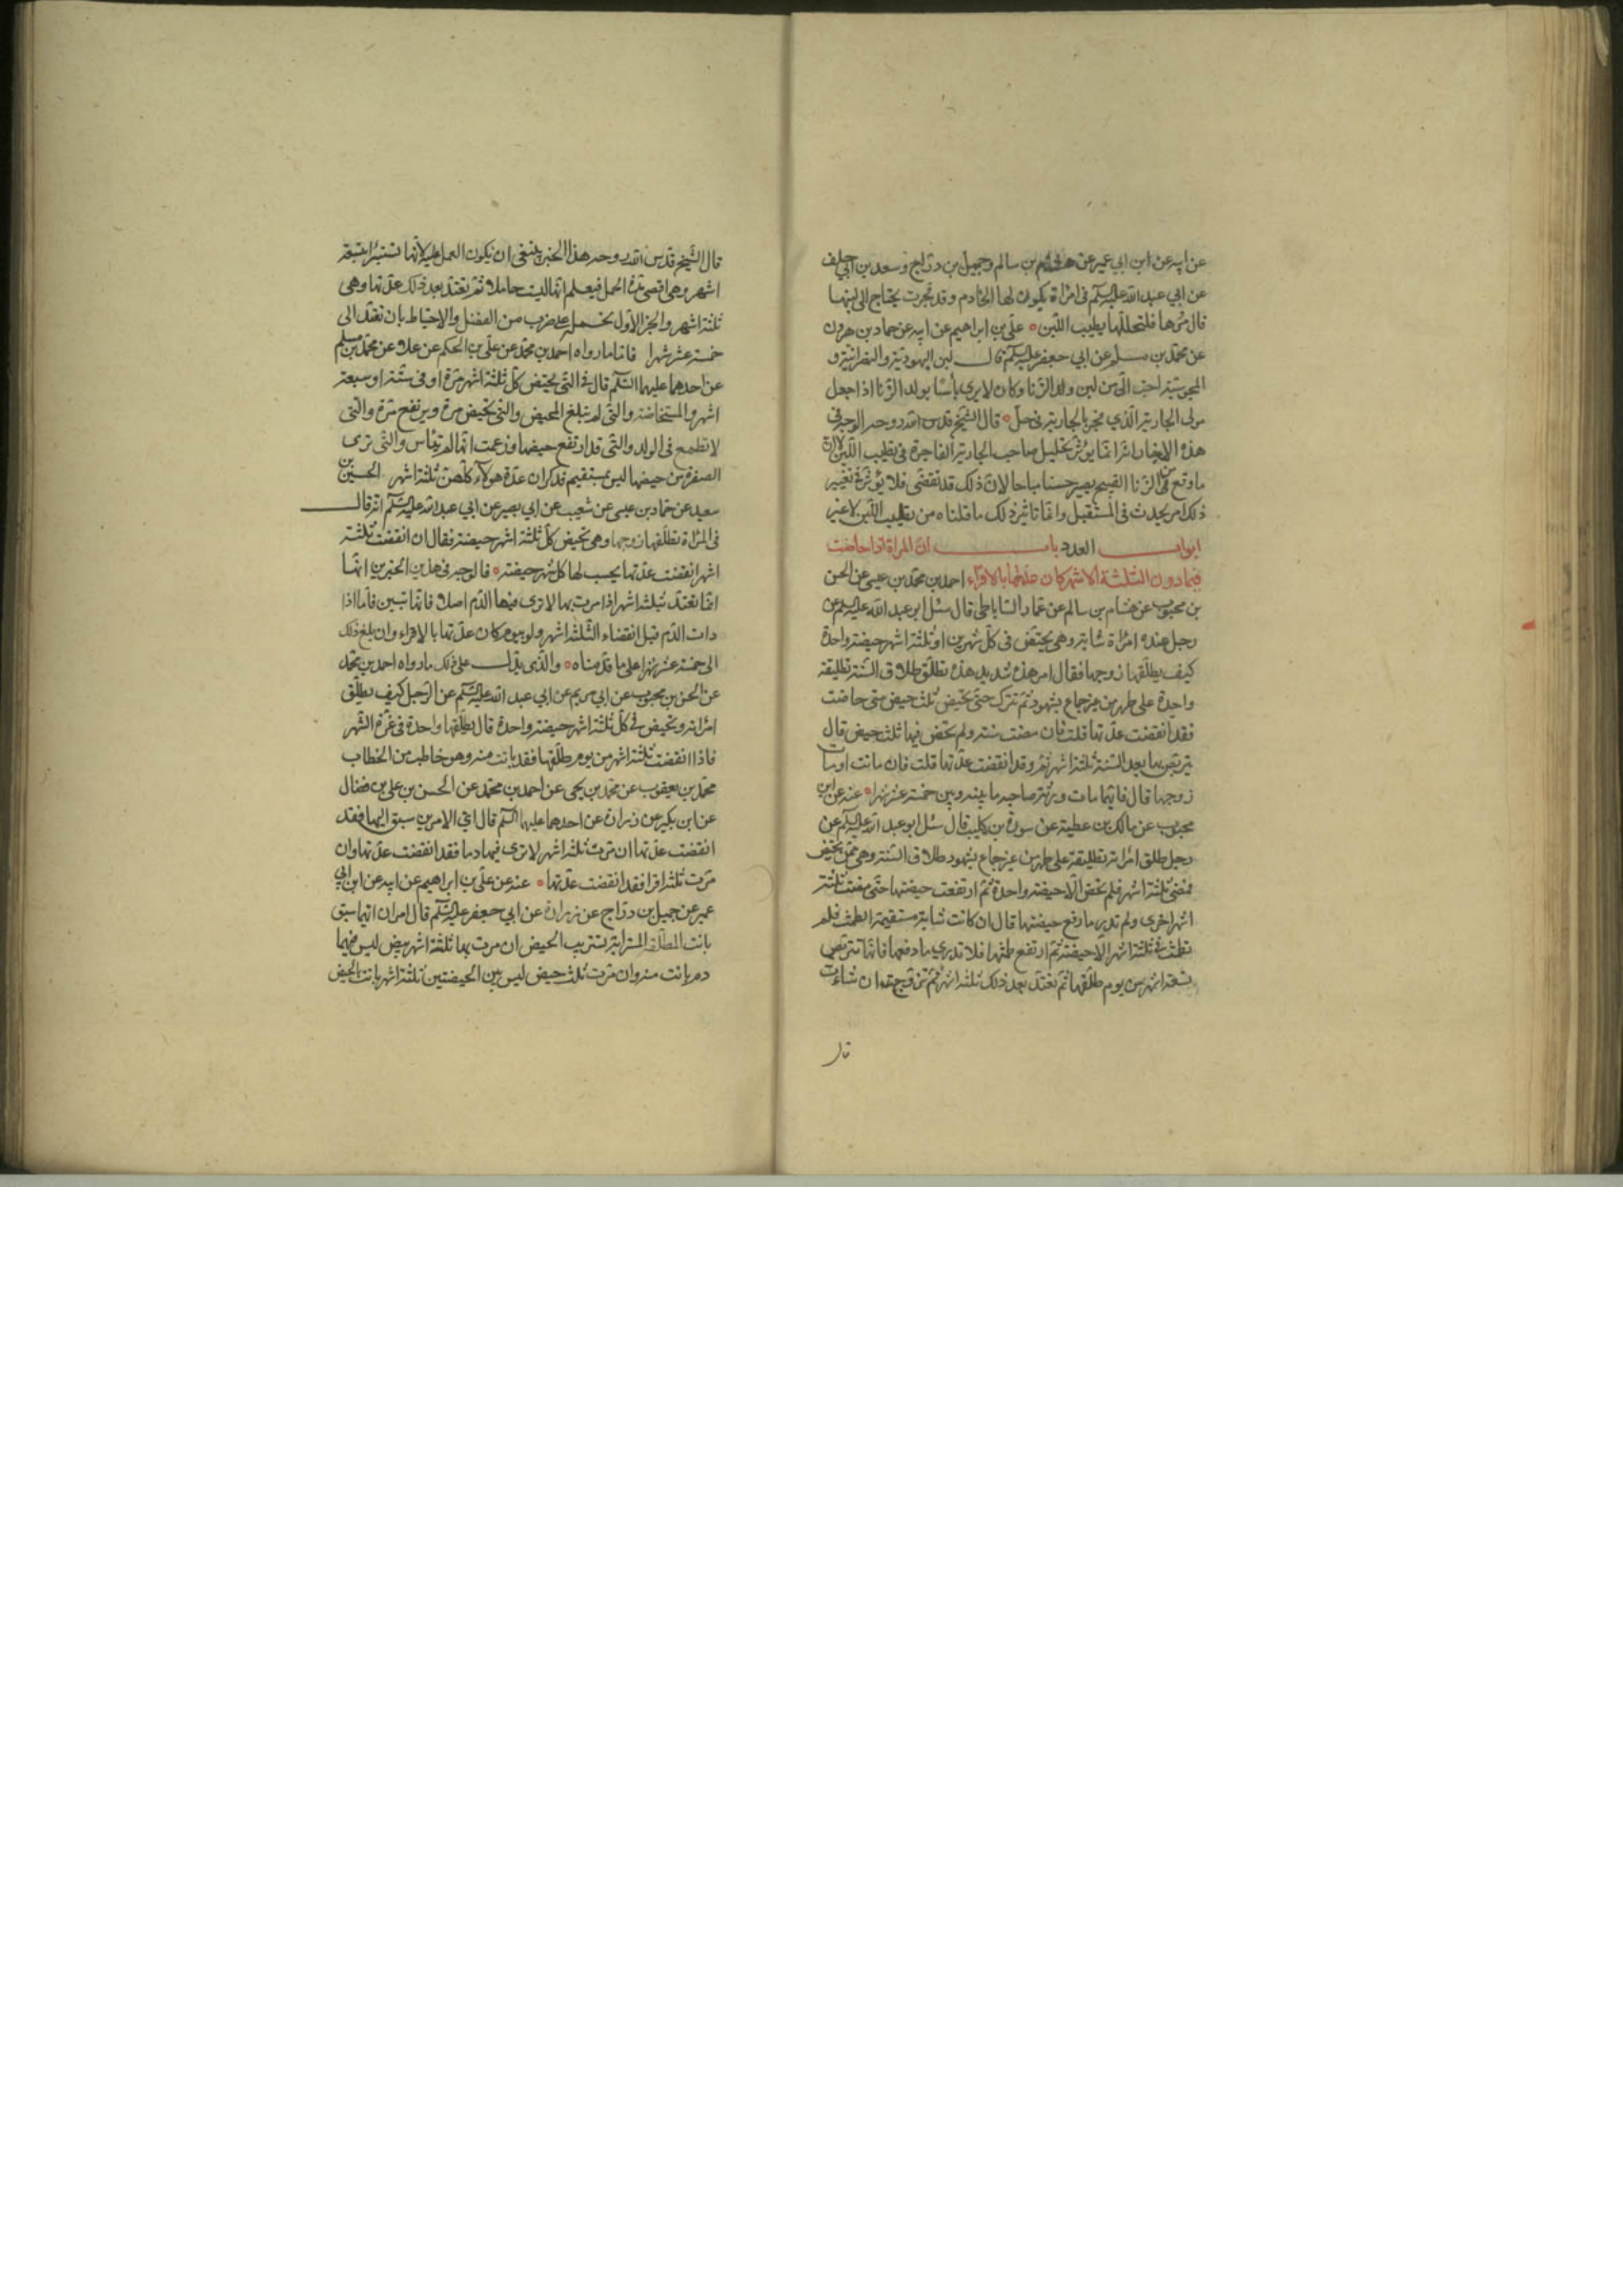 عن ابيه عن ابن ابي عمير عن هشام بن سالم وجميل بن دراج وسعد بن ابي خلف
عن ابي عبد الله عليه السلم في امراة يكون لها الخادم وقد فجرت يحتاج الى لبنها
قال مرها فلتحللها يطيب اللبن ه علي بن ابراهيم عن ابيه عن حماد بن هرون
عن محمد بن مسلم عن ابي جعفر عليه السلم قال لبن اليهودية والنصرانية و
المجوسية احب الي من لبن ولد الزنا وكان لا يرى باسا بولد الزنا اذا جعل
مولى الجارية الذي فجر بالجارية في حل ه قال الشيخ قدس الله روحه الوجه في
هذه الاخبار انه انما يؤثر تحليل صاحب الجارية الفاجرة في تطييب اللبن لا ان
ما وقع من الزنا القبيح يصير حسنا مباحا لان ذلك قد تقضى فلا يؤثر في تغيير
ذلك امر يحدث في المستقبل وانما تاثير ذلك ما قلناه من تطييب اللبن لا غير
ابواب العدد باب ان المراة اذا حاضت
فيما دون الثلثة الاشهر كان عدتها بالاقراء احمد بن محمد بن عيسى عن الحسن
بن محبوب عن هشام بن سالم عن عمار الساباطي قال سئل ابو عبد الله عليه السلم عن
رجل عنده امراة شابة وهي تحيض في كل شهرين او ثلثة اشهر حيضة واحدة
كيف يطلقها زوجها فقال امر هذه شديد هذه تطلق طلاق السنة تطليقة
واحدة على طهر من غير جماع بشهود ثم تترك حتى تحيض ثلث حيض متى حاضت
فقد انقضت عدتها قلت فان مضت سنة ولم تحض فيها ثلث حيض قال
يتربص بها بعد السنة ثلثة اشهر ثم وقد انقضت عدتها قلت فان ماتت او مات
زوجها قال فايهما مات ورثه صاحبه ما بينه وبين خمسة عشر شهرا ه عنه عن ابن
محبوب عن مالك بن عطية عن سورة بن كليب قال سئل ابو عبد الله عليه السلم عن
رجل طلق امراته تطليقة على طهر من غير جماع بشهود طلاق السنة وهي ممن تحيض
فمضى ثلثة اشهر فلم تحض الا حيضة واحدة ثم ارتفعت حيضتها حتى مضت ثلثة
اشهر اخرى ولم تدر ما رفع حيضتها قال ان كانت شابة مستقيمة الطمث فلم
تطمث في ثلثة اشهر الا حيضة ثم ارتفع طمثها فلا تدري ما رفعها فانها تتربص
تسعة اشهر من يوم طلقها ثم تعتد بعد ذلك ثلثة اشهر ثم تتزوج ان شاءت
قال
قال الشيخ قدس الله روحه هذا الخبر ينبغي ان يكون العمل عليه لانها تستبرا بتسعة
اشهر وهي اقصى مدة الحمل فيعلم انها ليست حاملا ثم تعتد بعد ذلك عدتها وهي
ثلثة اشهر والخبر الاول نحمله على ضرب من الفضل والاحتياط بان تعتد الى
خمسة عشر شهرا فاما ما رواه احمد بن محمد عن علي بن الحكم عن علا عن محمد بن مسلم
عن احدهما عليهما السلم قال في التي تحيض كل ثلثة اشهر مرة او في ستة او سبعة
اشهر والمستحاضة والتي لم تبلغ المحيض والتي تحيض مرة ويرتفع مرة والتي
لا تطمع في الولد والتي قد ارتفع حيضها وزعمت انها لم تيأس والتي ترى
الصفرة من حيضها ليس بمستقيم فذكر ان عدة هولاء كلهن ثلثة اشهر الحسين بن
سعيد عن حماد بن عيسى عن شعيب عن ابي بصير عن ابي عبد الله عليه السلم انه قال
في المراة يطلقها زوجها وهي تحيض كل ثلثة اشهر حيضة فقال ان انقضت ثلثة
اشهر انقضت عدتها يحسب لها كل شهر حيضة ه فالوجه في هذين الخبرين انها
انما تعتد بثلثة اشهر اذا مرت بها لا ترى فيها الدم اصلا فانها تبين فاما اذا
رات الدم قبل انقضاء الثلثة اشهر ولو بيوم كان عدتها بالاقراء وان بلغ ذلك
الى خمسة عشر شهرا على ما قدمناه ه والذي يدل على ذلك ما رواه احمد بن محمد
عن الحسن بن محبوب عن ابي مريم عن ابي عبد الله عليه السلم عن الرجل كيف يطلق
امراته وتحيض في كل ثلثة اشهر حيضة واحدة قال يطلقها واحدة في غرة الشهر
فاذا انقضت ثلثة اشهر من يوم طلقها فقد بانت منه وهو خاطب من الخطاب
محمد بن يعقوب عن محمد بن يحيى عن احمد بن محمد عن الحسن بن علي بن فضال
عن ابن بكير عن زرارة عن احدهما عليهما السلم قال اي الامرين سبق اليها فقد
انقضت عدتها ان مرت ثلثة اشهر لا ترى فيها دما فقد انقضت عدتها وان
مرت ثلثة اقرا فقد انقضت عدتها ه عنه عن علي بن ابراهيم عن ابيه عن ابن ابي
عمير عن جميل بن دراج عن زرارة عن ابي جعفر عليه السلم قال امران ايهما سبق
بانت المطلقة المسترابة تستريب الحيض ان مرت بها ثلثة اشهر بيض ليس فيها
دم بانت منه وان مرت ثلث حيض ليس بين الحيضتين ثلثة اشهر بانت بالحيض